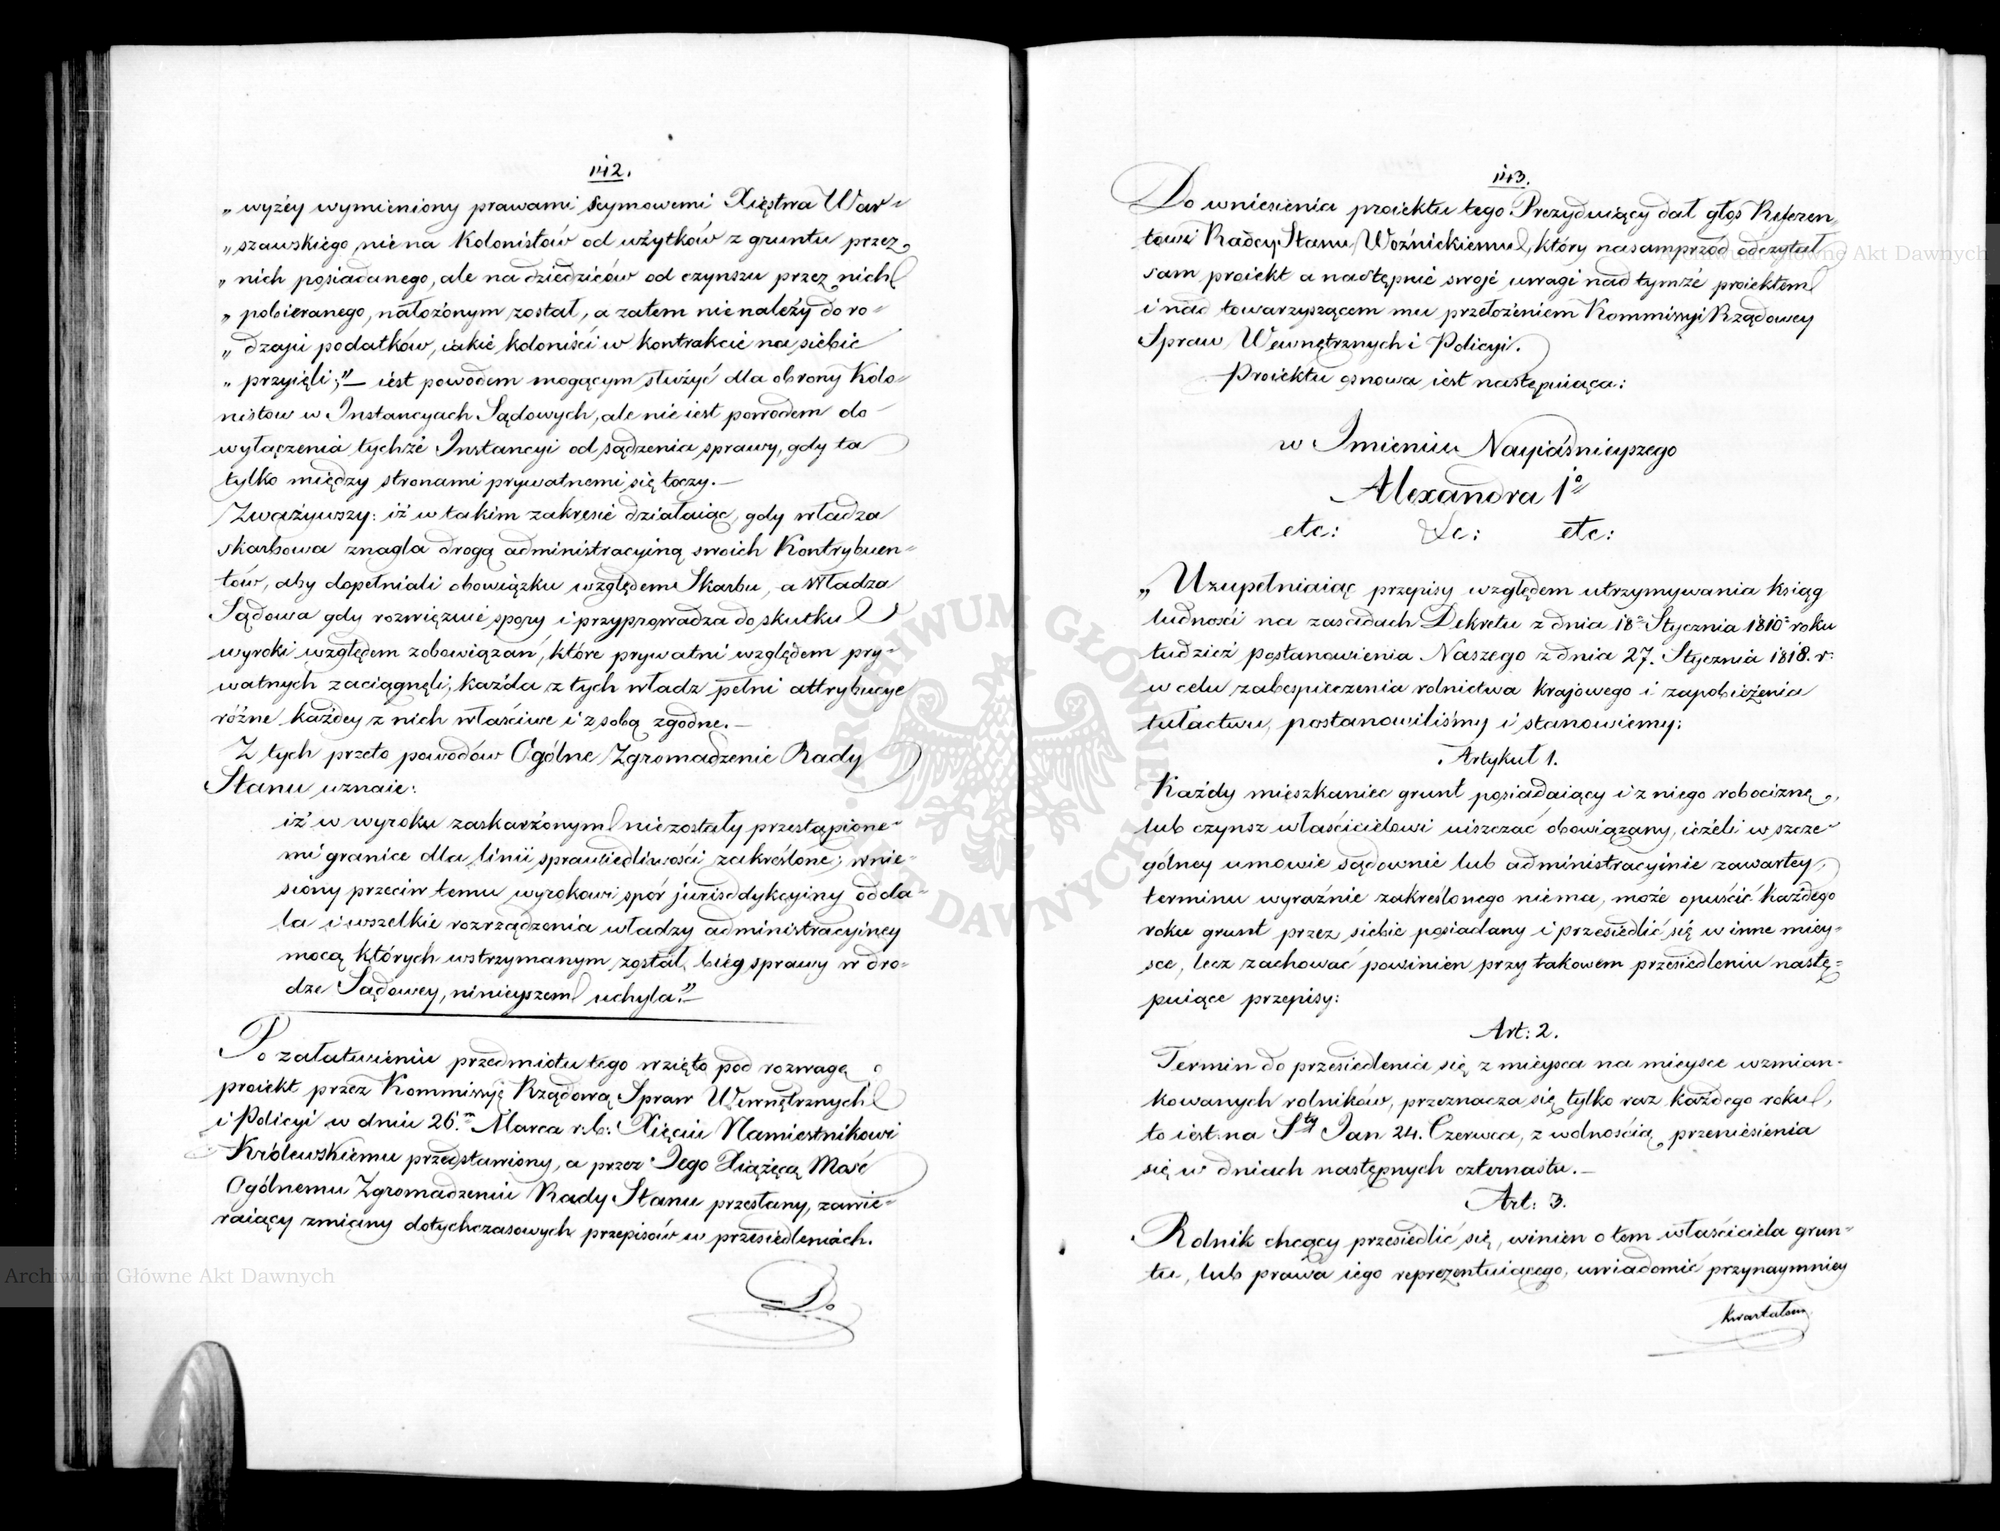 112.
„wyżéy wymieniony prawami Seymowemi Xięstwa War-
„szawskiego, nie na Kolonistów od użytków z gruntu przez
„nich posiadanego, ale na dziedziców od czynszu przez nich
„pobieranego, nałożonym został, a zatem nie należy do ro-
„dzaju podatków, iakie koloniści w kontrakcie na siebie
„przyięli;"— iest powodem mogącym służyć dla obrony Kolo-
nistów w Instancyach Sądowych, ale nie iest powodem do
wyłączenia tychże Instancyi od sądzenia sprawy, gdy ta
tylko między stronami prywatnemi się toczy.—
Zważywszy: iż w takim zakresie działaiąc, gdy władza
skarbowa znagla drogą administracyiną swoich Kontrybuen-
tów, aby dopełniali obowiązku względem Skarbu, a Władza
Sądowa gdy rozwięzuie spory i przyprowadza do skutku
wyroki względem zobowiązań, które prywatni względem pry-
watnych zaciągnęli; każda z tych władz pełni attrybucye
różne, każdey z nich właściwe i z sobą zgodne.—
Z tych przeto powodów Ogólne Zgromadzenie Rady
Stanu uznaie:
iż w wyroku zaskarżonym nie zostały przestąpione-
mi granice dla linii sprawiedliwości zakreślone; wnie-
siony przeciw temu wyrokowi spór jurisdykcyiny odda-
la i wszelkie rozrządzenia władzy administracyiney
mocą których wstrzymanym został bieg sprawy w dro-
dze Sądowey, ninieyszem uchyla."—
Po załatwieniu przedmiotu tego wzięto pod rozwagę
proiekt przez Kommissyę Rządową Spraw Wewnętrznych
i Policyi w dniu 26.m Marca r: b: Xięciu Namiestnikowi
Królewskiemu przedstawiony, a przez Jego Xiążęcą Mość
Ogólnemu Zgromadzeniu Rady Stanu przesłany, zawie-
raiący zmiany dotychczasowych przepisów w przesiedleniach.
Do
113.
Do wniesienia proiektu tego Prezyduiący dał głos Referen-
towi Radcy Stanu Woźnickiemu, który nasamprzód odczytał
sam proiekt a następnie swoje uwagi nad tymże proiektem
i nad towarzyszącem mu przełożeniem Kommissyi Rządowey
Spraw Wewnętrznych i Policyi.
Proiektu osnowa iest następuiąca:
w Imieniu Nayiaśnieyszego
Alexandra 1o
etc: &c: etc:
„Uzupełniaiąc przepisy względem utrzymywania ksiąg
ludności na zasadach Dekretu z dnia 18o Stycznia 1810o roku
tudzież postanowienia Naszego z dnia 27. Stycznia 1818. r:
w celu zabezpieczenia rolnictwa krajowego i zapobieżenia
tułactwu, postanowiliśmy i stanowiemy:
Artykuł 1.
Każdy mieszkaniec grunt posiadaiący i z niego robociznę,
lub czynsz właścicielowi uiszczać obowiązany, ieżeli w szcze-
gólney umowie sądownie lub administracyinie zawartey,
terminu wyraźnie zakreślonego niema, może opuścić każdego
roku grunt przez siebie posiadany i przesiedlić się w inne miey-
sce, lecz zachować powinien przy takowem przesiedleniu nastę-
puiące przepisy:
Art: 2.
Termin do przesiedlenia się z mieysca na mieysce wzmian-
kowanych rolników, przeznacza się tylko raz każdego roku,
to iest: na Sty Jan 24. Czerwca, z wolnością przeniesienia
się w dniach następnych czternastu.—
Art: 3.
Rolnik chcący przesiedlić się, winien o tem właściciela grun-
tu, lub prawa iego reprezentuiącego, uwiadomić przynaymniey
kwartałem
Archiwum Główne Akt Dawnych
Archiwum Główne Akt Dawnych
ARCHIWUM GŁÓWNE AKT DAWNYCH